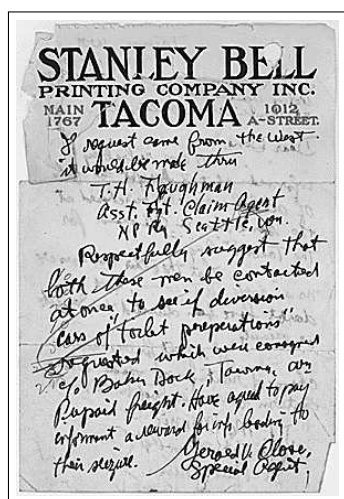 STANLEY BELL
PRINTING COMPANY INC.
MAIN 1767 TACOMA 1012 A-STREET.
If request came from the West
it would be made thru
T.H. Kaughman
Asst. Frt. Claim Agent
NP Ry Seattle, Wn.
Respectfully suggest that
both these men be contacted
at once, to see if diversion
cars of toilet preperations"
requested which were consigned
c/o Baker Dock, Tacoma, Wn
Prepaid freight. Have agreed to pay
informant a reward for inf. leading to
their seizure.
Gerald V. Close,
Special Agent,